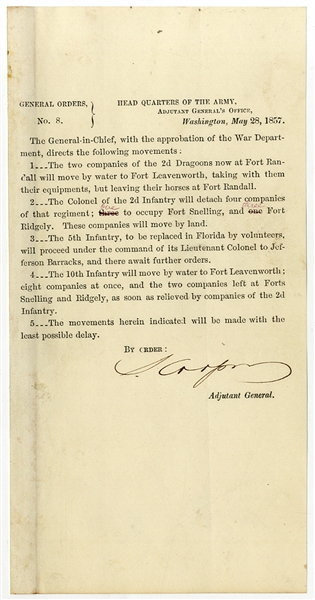 GENERAL ORDERS, } HEAD QUARTERS OF THE ARMY,
ADJUTANT GENERAL'S OFFICE,
No. 8. Washington, May 28, 1857.
The General-in-Chief, with the approbation of the War Depart-
ment, directs the following movements:
1...The two companies of the 2d Dragoons now at Fort Ran-
dall will move by water to Fort Leavenworth, taking with them
their equipments, but leaving their horses at Fort Randall.
2...The Colonel of the 2d Infantry will detach four companies
one three
of that regiment; three to occupy Fort Snelling, and one Fort
Ridgely. These companies will move by land.
3...The 5th Infantry, to be replaced in Florida by volunteers,
will proceed under the command of its Lieutenant Colonel to Jef-
ferson Barracks, and there await further orders.
4...The 10th Infantry will move by water to Fort Leavenworth;
eight companies at once, and the two companies left at Forts
Snelling and Ridgely, as soon as relieved by companies of the 2d
Infantry.
5...The movements herein indicated will be made with the
least possible delay.
BY ORDER:
S. Cooper
Adjutant General.